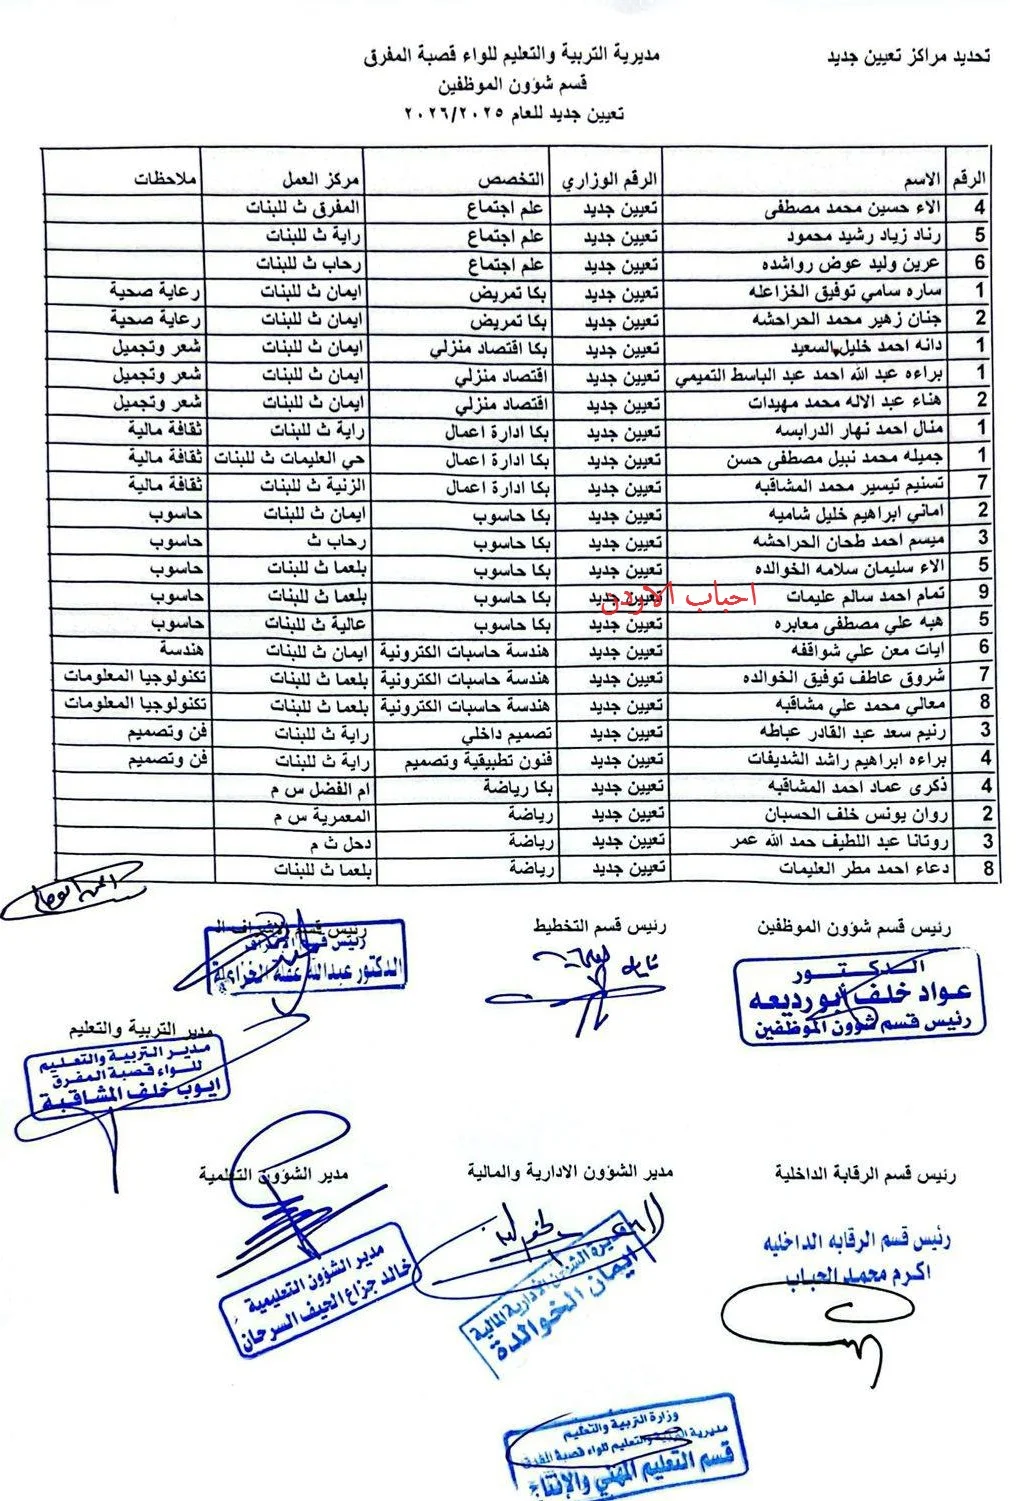 تحديد مراكز تعيين جديد
مديرية التربية والتعليم للواء قصبة المفرق
قسم شؤون الموظفين
تعيين جديد للعام ٢٠٢٦/٢٠٢٥
الرقم الاسم الرقم الوزاري التخصص مركز العمل ملاحظات
4 الاء حسين محمد مصطفى تعيين جديد علم اجتماع المفرق ث للبنات
5 رناد زياد رشيد محمود تعيين جديد علم اجتماع راية ث للبنات
6 عرين وليد عوض رواشده تعيين جديد علم اجتماع رحاب ث للبنات
1 ساره سامي توفيق الخزاعله تعيين جديد بكا تمريض ايمان ث للبنات رعاية صحية
2 جنان زهير محمد الحراحشه تعيين جديد بكا تمريض ايمان ث للبنات رعاية صحية
1 دانه احمد خليل السعيد تعيين جديد بكا اقتصاد منزلي ايمان ث للبنات شعر وتجميل
1 براءه عبد الله احمد عبد الباسط التميمي تعيين جديد اقتصاد منزلي ايمان ث للبنات شعر وتجميل
2 هناء عبد الاله محمد مهيدات تعيين جديد اقتصاد منزلي ايمان ث للبنات شعر وتجميل
1 منال احمد نهار الدرابسه تعيين جديد بكا ادارة اعمال راية ث للبنات ثقافة مالية
1 جميله محمد نبيل مصطفى حسن تعيين جديد بكا ادارة اعمال حي العليمات ث للبنات ثقافة مالية
7 تسنيم تيسير محمد المشاقبه تعيين جديد بكا ادارة اعمال الزنية ث للبنات ثقافة مالية
2 اماني ابراهيم خليل شاميه تعيين جديد بكا حاسوب ايمان ث للبنات حاسوب
3 ميسم احمد طحان الحراحشه تعيين جديد بكا حاسوب رحاب ث حاسوب
5 الاء سليمان سلامه الخوالده تعيين جديد بكا حاسوب بلعما ث للبنات حاسوب
9 تمام احمد سالم عليمات تعيين جديد بكا حاسوب بلعما ث للبنات حاسوب
احباب الاردن
5 هبه علي مصطفى معابره تعيين جديد بكا حاسوب عالية ث للبنات حاسوب
6 ايات معن علي شواقفه تعيين جديد هندسة حاسبات الكترونية ايمان ث للبنات هندسة
7 شروق عاطف توفيق الخوالده تعيين جديد هندسة حاسبات الكترونية بلعما ث للبنات تكنولوجيا المعلومات
8 معالي محمد علي مشاقبه تعيين جديد هندسة حاسبات الكترونية بلعما ث للبنات تكنولوجيا المعلومات
3 رنيم سعد عبد القادر عباطه تعيين جديد تصميم داخلي راية ث للبنات فن وتصميم
4 براءه ابراهيم راشد الشديفات تعيين جديد فنون تطبيقية وتصميم راية ث للبنات فن وتصميم
4 ذكرى عماد احمد المشاقبه تعيين جديد بكا رياضة ام الفضل س م
2 روان يونس خلف الحسبان تعيين جديد رياضة المعمرية س م
3 روتانا عبد اللطيف حمد الله عمر تعيين جديد رياضة دحل ث م
8 دعاء احمد مطر العليمات تعيين جديد رياضة بلعما ث للبنات
رئيس قسم شؤون الموظفين
رئيس قسم التخطيط
رئيس قسم الاشراف
الدكتور
عواد خلف أبورديعه
رئيس قسم شوون الموظفين
رئيس قسم الاشراف
الدكتور عبدالله عقلة الخزاعلة
مدير التربية والتعليم
مدير التربية والتعليم
للواء قصبة المفرق
ايوب خلف المشاقبة
رئيس قسم الرقابة الداخلية
مدير الشؤون الادارية والمالية
مدير الشؤون التعلمية
رئيس قسم الرقابه الداخليه
اكرم محمد الحباب
مديرة الشؤون الادارية المالية
ايمان الخوالدة
مدير الشؤون التعليمية
خالد جزاع الحيف السرحان
وزارة التربية والتعليم
مديرية التربية والتعليم للواء قصبة المفرق
قسم التعليم المهني والإنتاج